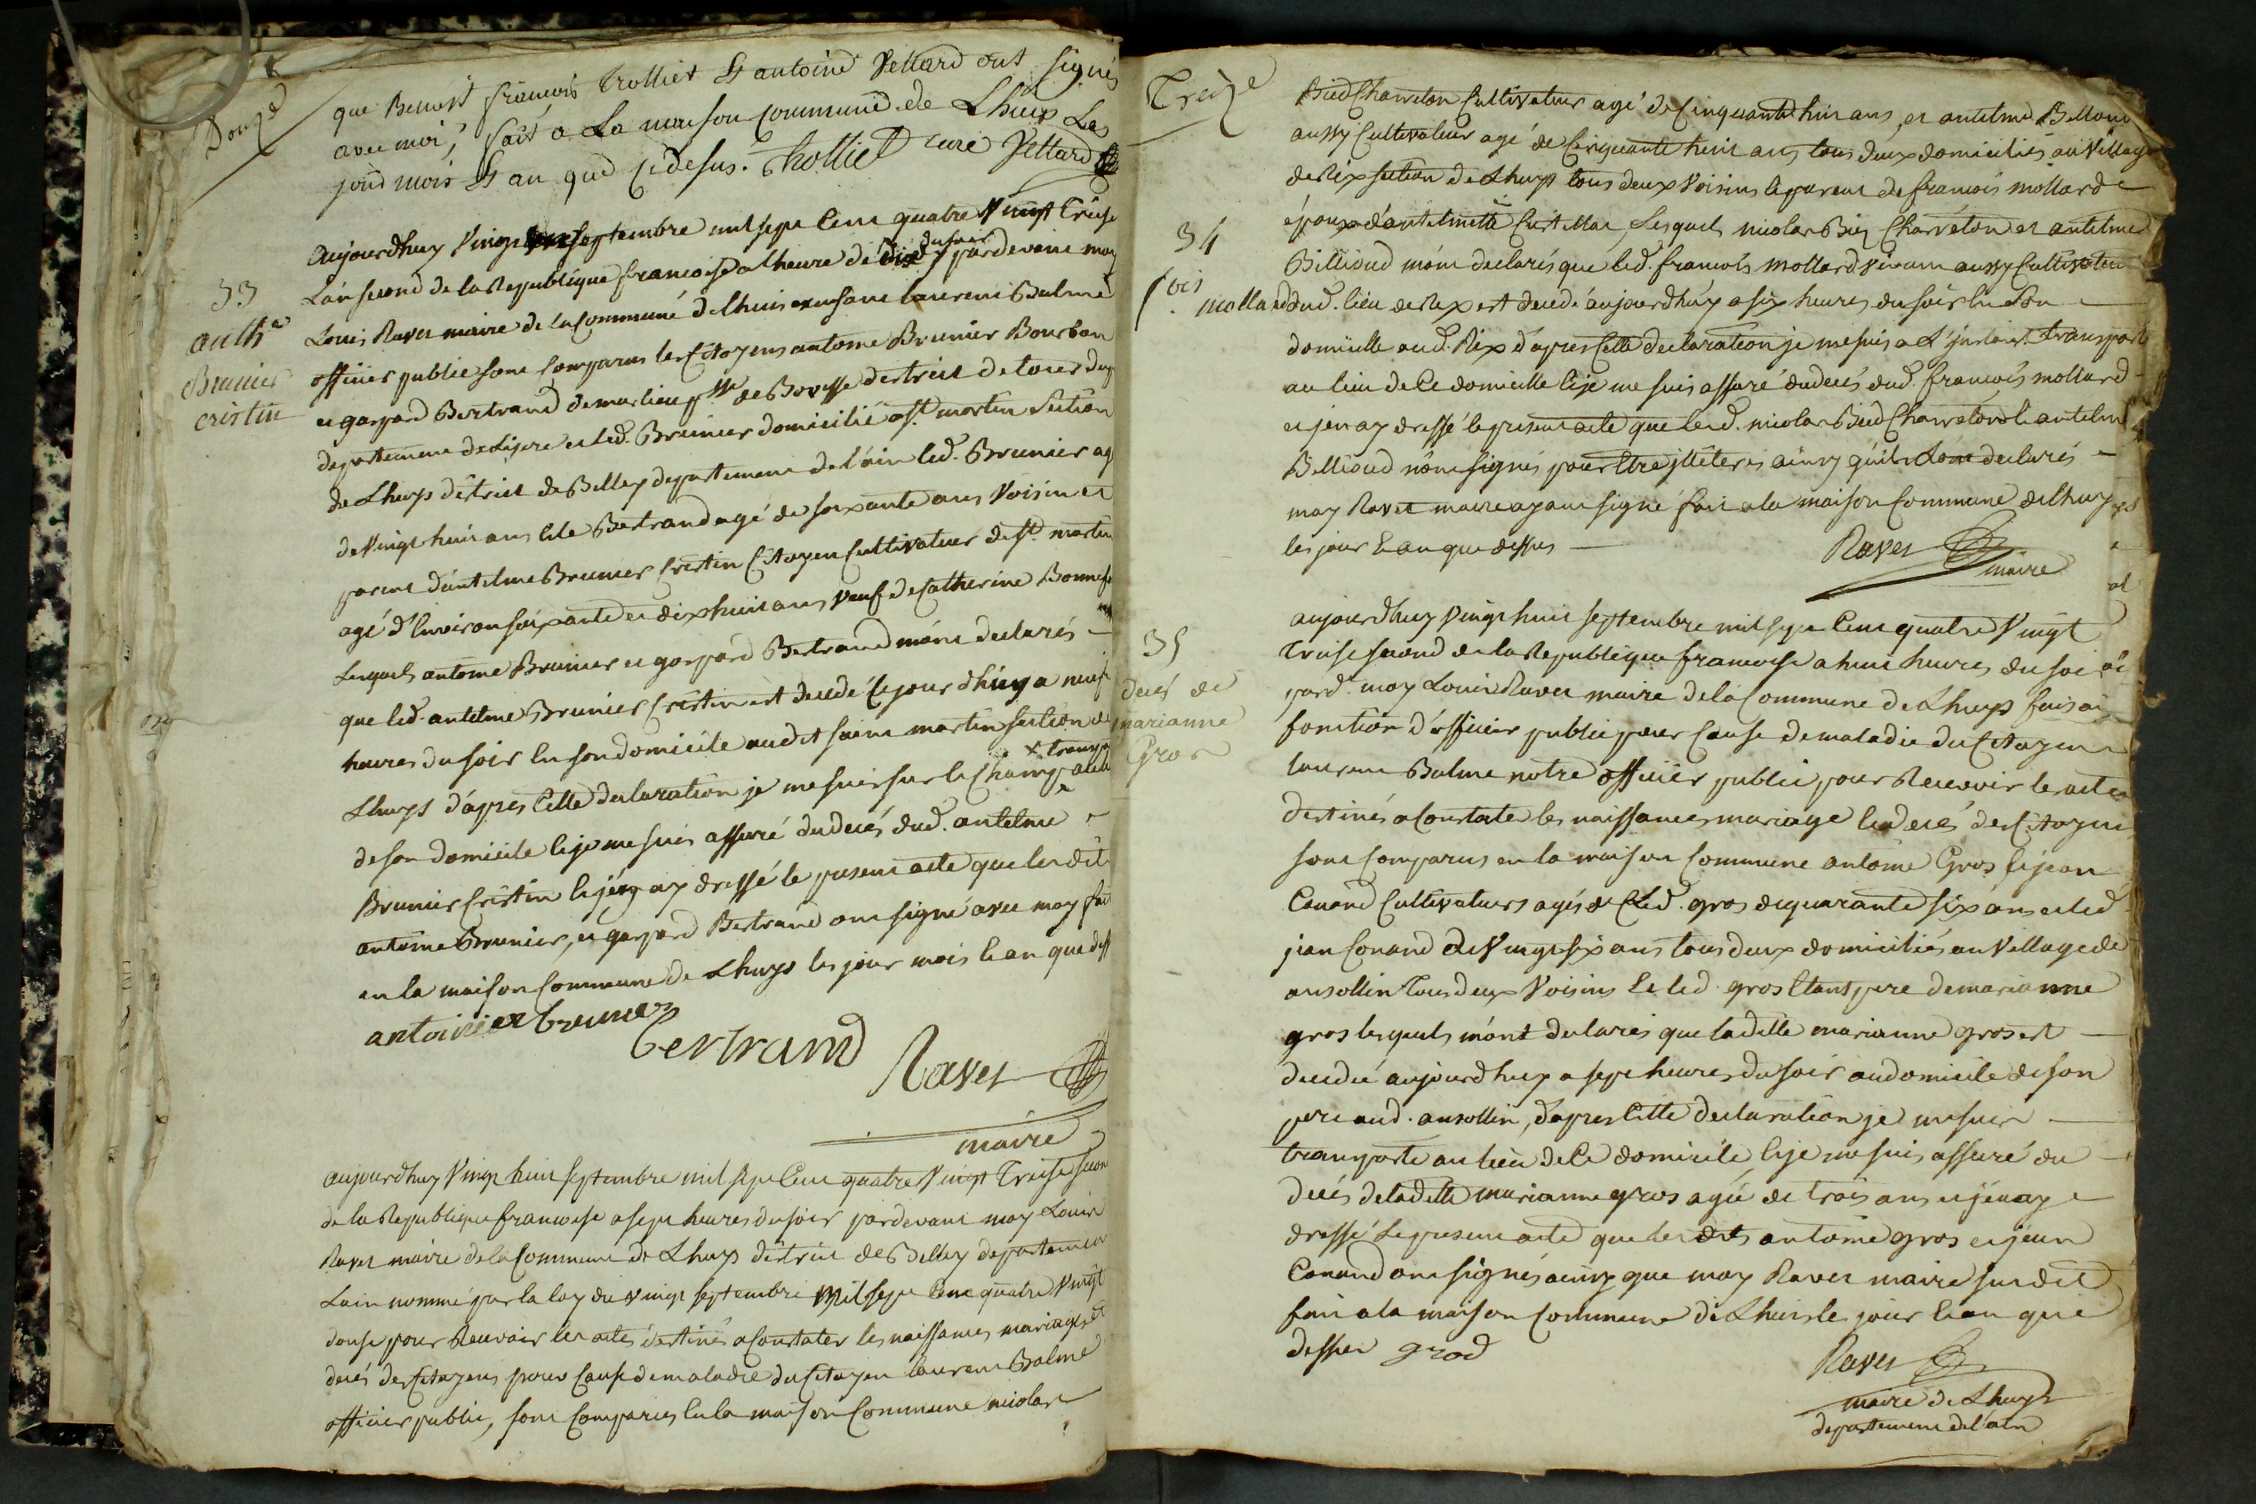 Douze
que Benoist francois Trolliet Et antoine Vettard ont signés
avec moi, fait a La maison commune de Lhuix Les
jour mois Et an que cidesus. Trolliet curé Vettard
33
anth.e
Brunier
cristin
aujourdhuy Vingt septembre mil sept Cent quatre Vingt Treise
Lan second de la Republique francoise a lheure de dix du soir pardevant moy
Louis Ravet maire de la Commune de lhuis en absance laurent Balme
officier public sont Comparus les Citoyens antoine Brunier Bourbon
et gaspard Bertrand de marlieu p.sse de Bovesse destrict de tour dup
departement de Lisere et led. Brunier domicilié a st. martin Section
de Lhuys district de Belley departement de l'ain led. Brunier agé
de Vingt huit ans et le Bertrand agé de soixante ans Voisin et
parent d'antelme Brunier Cristin Citoyen Cultivateur de st. martin
agé d'Environ soixante et dix huit ans Veuf de Catherine Bonnefe
Lesquels antoine Brunier et gaspard Bertrand m'ont declarés
que led. antelme Brunier Cristin est decedé Ce jour dhuy a neuf
heures du soir En son domicile audit saint martin section de
Lhuys d'apres Cette declaration je me suis sur le Champ x transp au lieu
de son domicile Et je me suis assuré du decés dud. antelme
Brunier Cristin Et j'en ay dressé le present acte que lesdits
antoine Brunier, et gaspard Bertrand ont signé avec moy fait
en la maison Commune de Lhuys les jour mois Et an que dess
antoine Brunier
Bertrand
Ravet
maire
aujourdhuy Vingt huit septembre mil sept Cent quatre Vingt Treise second
de la Republique francoise a sept heures du soir pardevant moy Louis
Ravet maire de la Commune de Lhuys district de Belley departement
Lain nommé par la loy du vingt septembre Mil sept Cent quatre Vingt
douse pour Recevoir les actes destinés a Constater les naissances mariages et
decés des Citoyens pour Cause de maladie du Citoyen laurent Balme
officier public, sont Comparus En la maison Commune nicolas
Treize
Bied Charreton Cultivateur agé de Cinquante huit ans et antelme Billioud
aussy Cultivateur agé de Cinquante huit ans tous deux domiciliés au Village
de Rix section de Lhuys tous deux Voisins Et parent de francois mollard
époux d'antelmette Lesquels nicolas Bied Charreton et antelme
34
Billioud m'ont declarés que led. francois mollard vivant aussy Cultivateur
mollard
dud. lieu de Rix est decedé aujourdhuy a six heures du soir En son
domicille aud. Rix d'apres Cette declaration je me suis a L'instant transporté
au lieu de Ce domicille Et je me suis assuré du decés dud. francois mollard
et j'en ay dressé le present acte que lesd. nicolas Bied Charreton Et antelme
Billioud n'ont signés pour Etre illeterés ainsy quils l'ont declarés
moy Ravet maire ayant signé fait a la maison Commune de lhuys
les jour Et an que dessus
Ravet
maire
35
decés de
marianne
Gros
aujourdhuy Vingt huit septembre mil sept Cent quatre Vingt
Treise second de la Republique francoise a huit heures du soir
pard.t moy Louis Ravet maire de la Commune de Lhuys faisant
fonction d'officier public pour Cause de maladie du Citoyen
laurent Balme notre officier public pour Recevoir les actes
destinés a Constater les naissances mariage Et decés des Citoyens
sont Comparus en la maison Commune antoine Gros Et jean
Conand Cultivateurs agés led. gros de quarante six ans et led.
jean Conand de Vingt six ans tous deux domiciliés au Village de
ansollin Tous deux Voisins Et led. gros Etant pere de marianne
gros lesquels m'ont declarés que ladette marianne gros est
decedée aujourdhuy a sept heures du soir au domicile de son
pere aud. ansollin, d'apres Cette declaration je me suis
transporté au lieu de Ce domicile Et je me suis assuré du
decés de ladette marianne gros agée de trois ans et j'en ay
dressé Le present acte que lesdits antoine gros et jean
Conand ont signés ainsy que moy Ravet maire susdit
fait a la maison Commune de Lhuis le jour Et an que
dessus gros
Ravet
maire de Lhuys
departement de l'ain